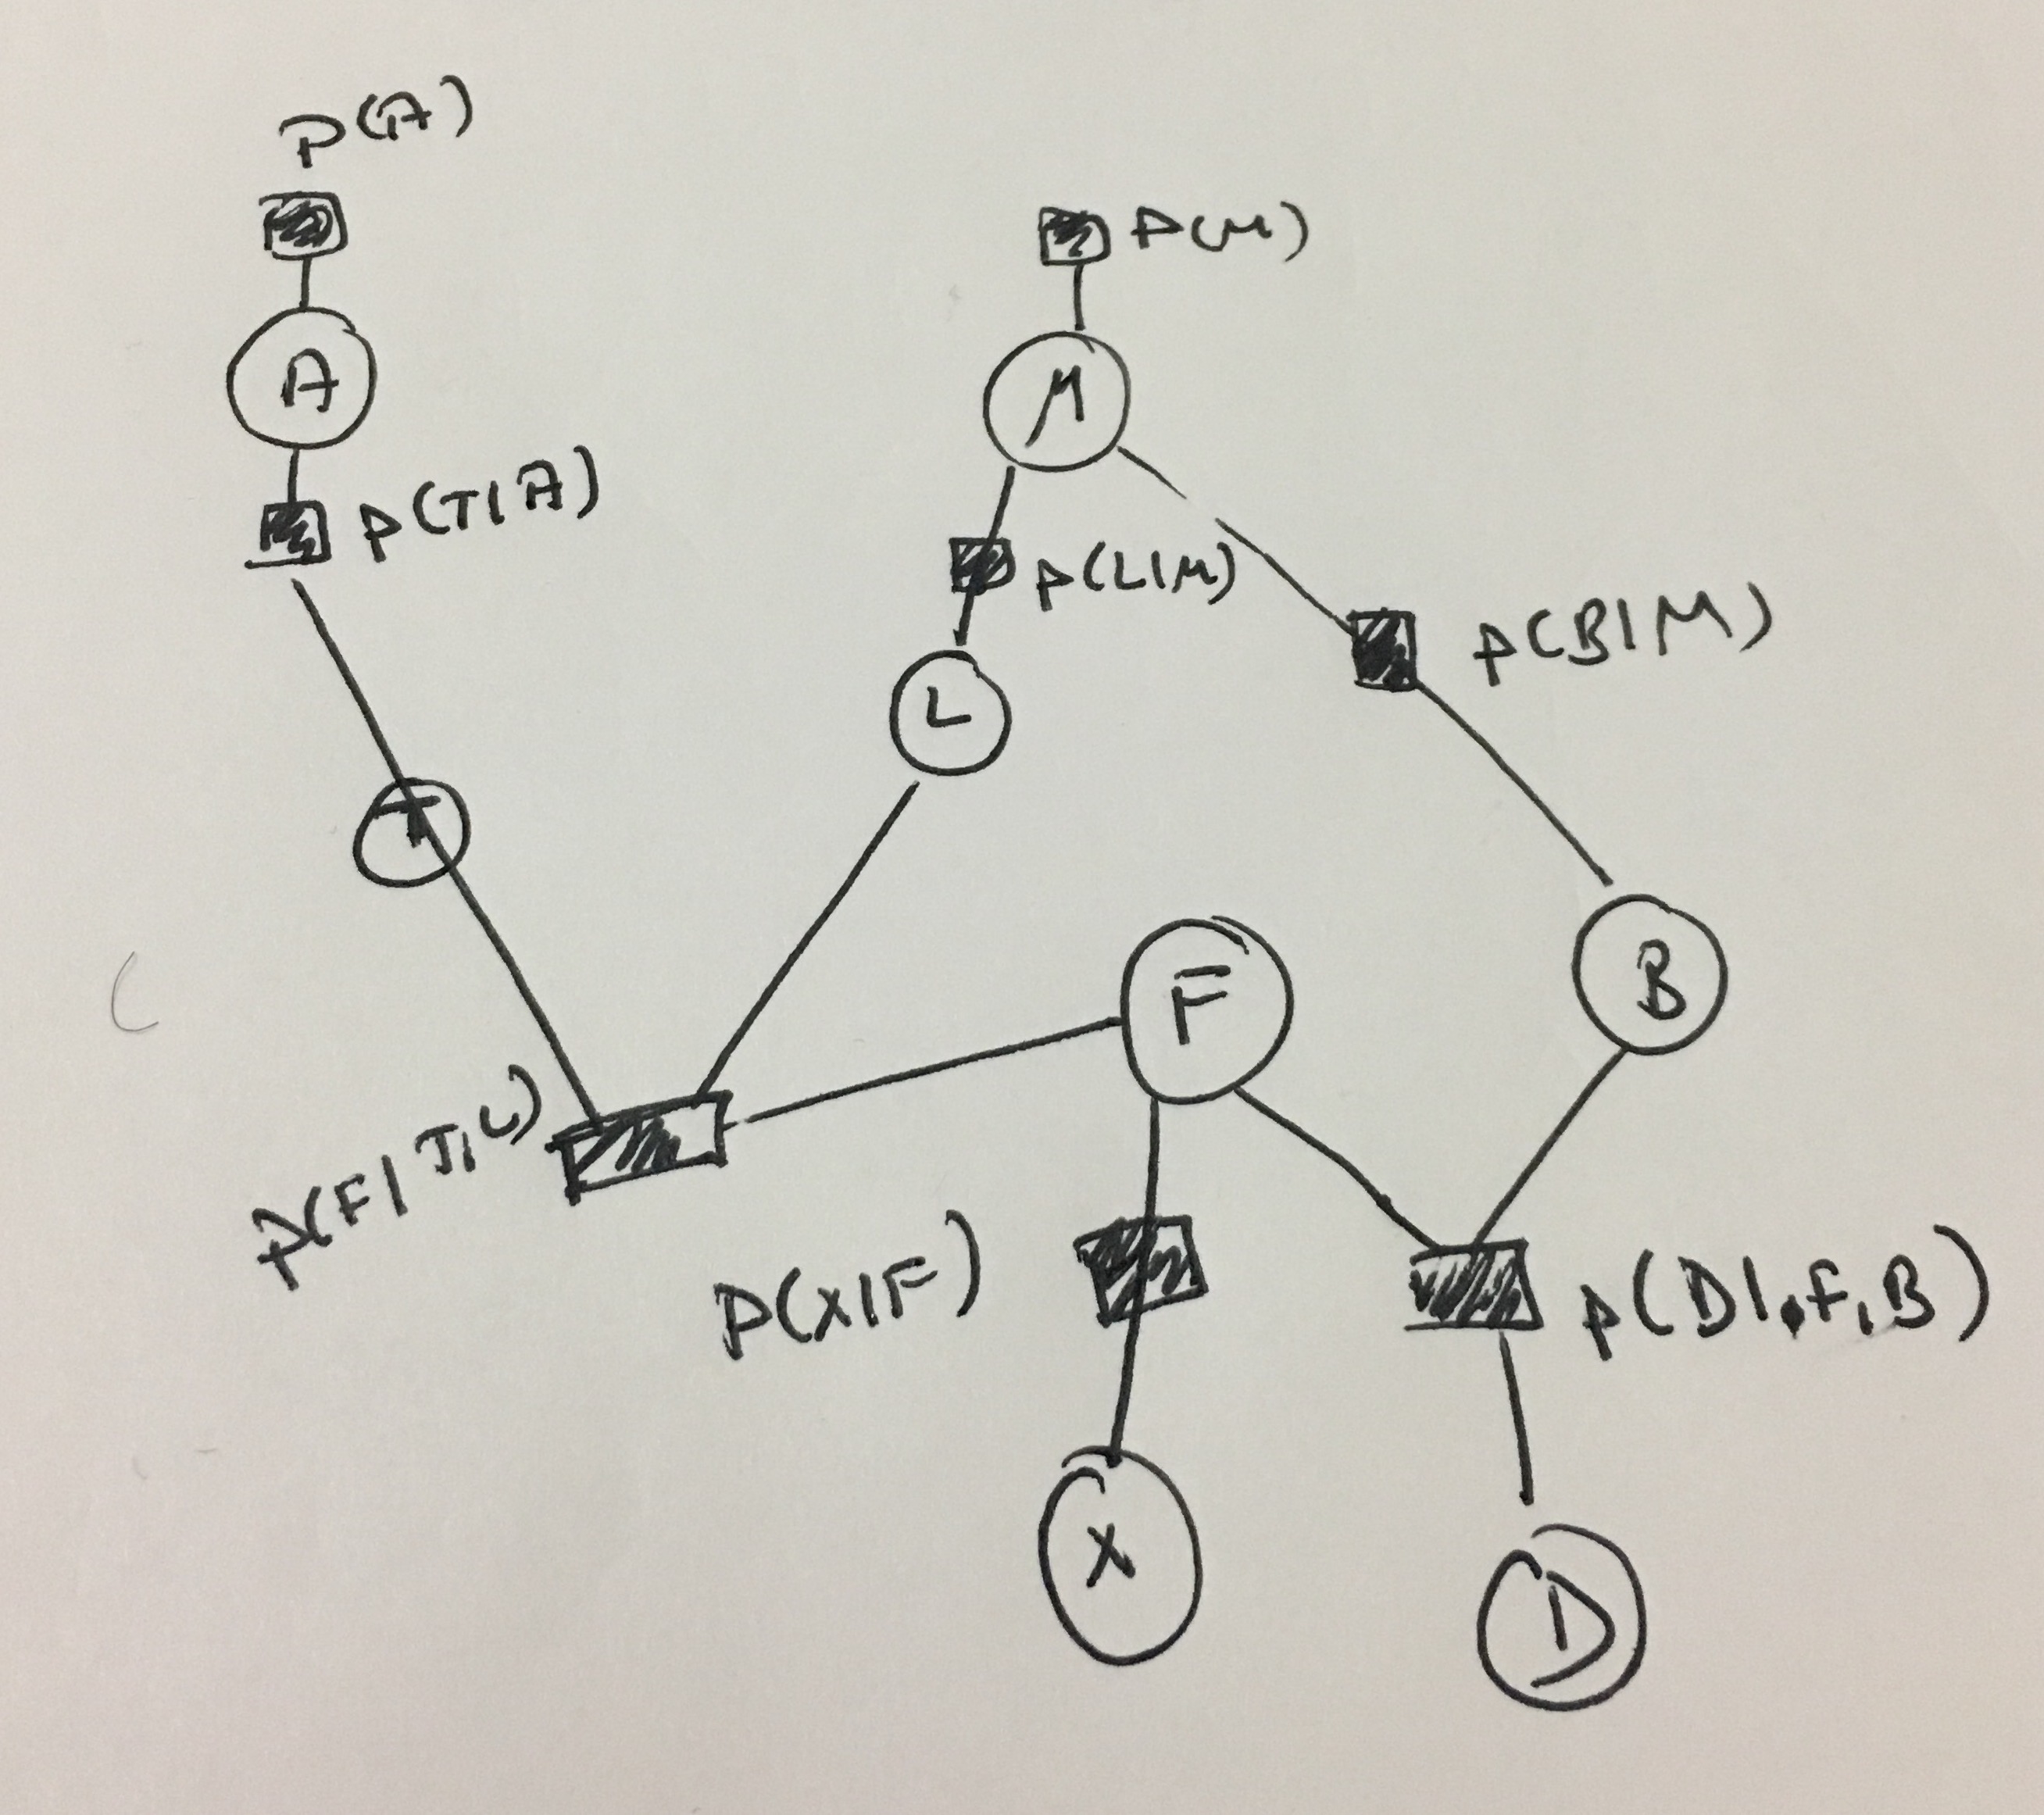 P(A)
P(M)
A
M
P(T|A)
P(L|M)
P(B|M)
L
T
F
B
P(F|T,L)
P(X|F)
P(D|F,B)
X
D